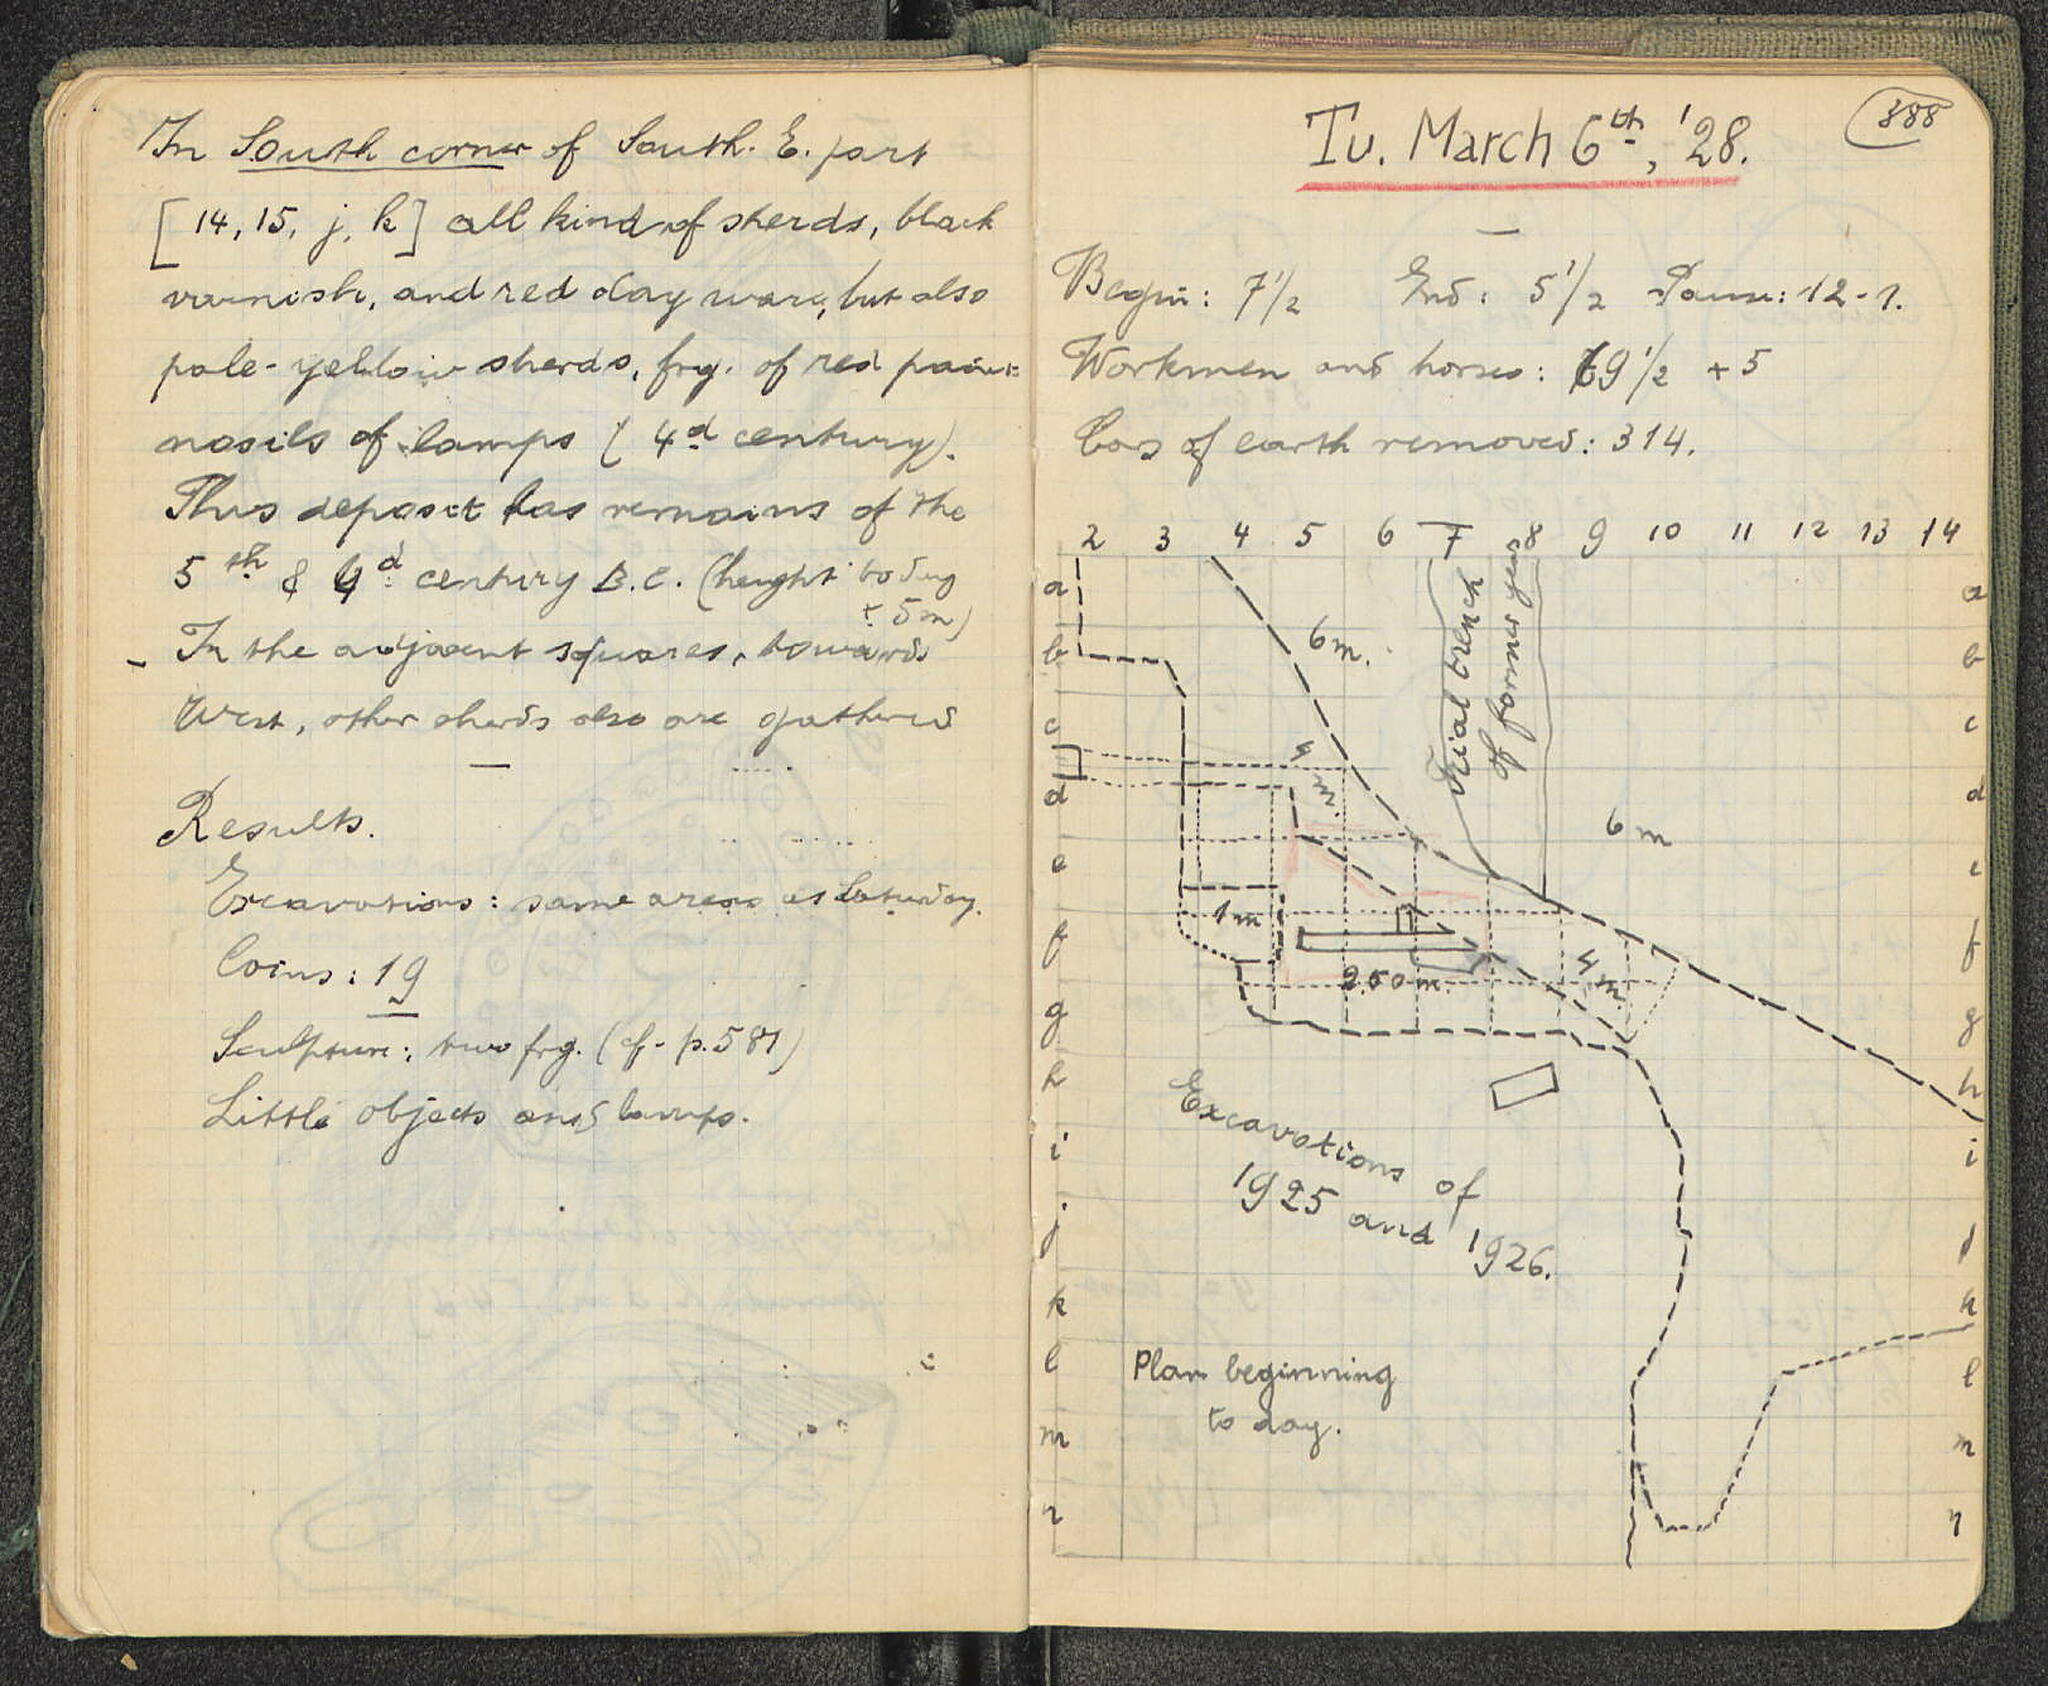 In South corner of South. E. part
[14, 15, j, k] all kind of sherds, black
varnish, and red clay ware, but also
pale-yellow sherds, frg. of red paint=
nosils of lamps (4d century).
This deposit has remains of the
5th & 4d century B.C. (height to day
± 5m)
- In the adjacent squares, towards
West, other sherds also are gathered
—
Results.
Excavations: same areas as Saturday.
Coins: 19
Sculpture: two frg. (cf. p. 581)
Little objects and lamps.
388
Tu. March 6th, '28.
—
Begin: 7 1/2 End: 5 1/2 Pause: 12-1.
Workmen and horses: 69 1/2 + 5
Cars of earth removed: 314.
2 3 4 5 6 7 8 9 10 11 12 13 14
a a
b 6 m. b
Trial trench
of former year
c c
4 m.
d d
6 m
e e
1 m
f f
4 m.
2.50 m.
g g
h h
Excavations of
1925 and 1926.
i i
j j
k k
l l
Plan beginning
to day.
m m
n n